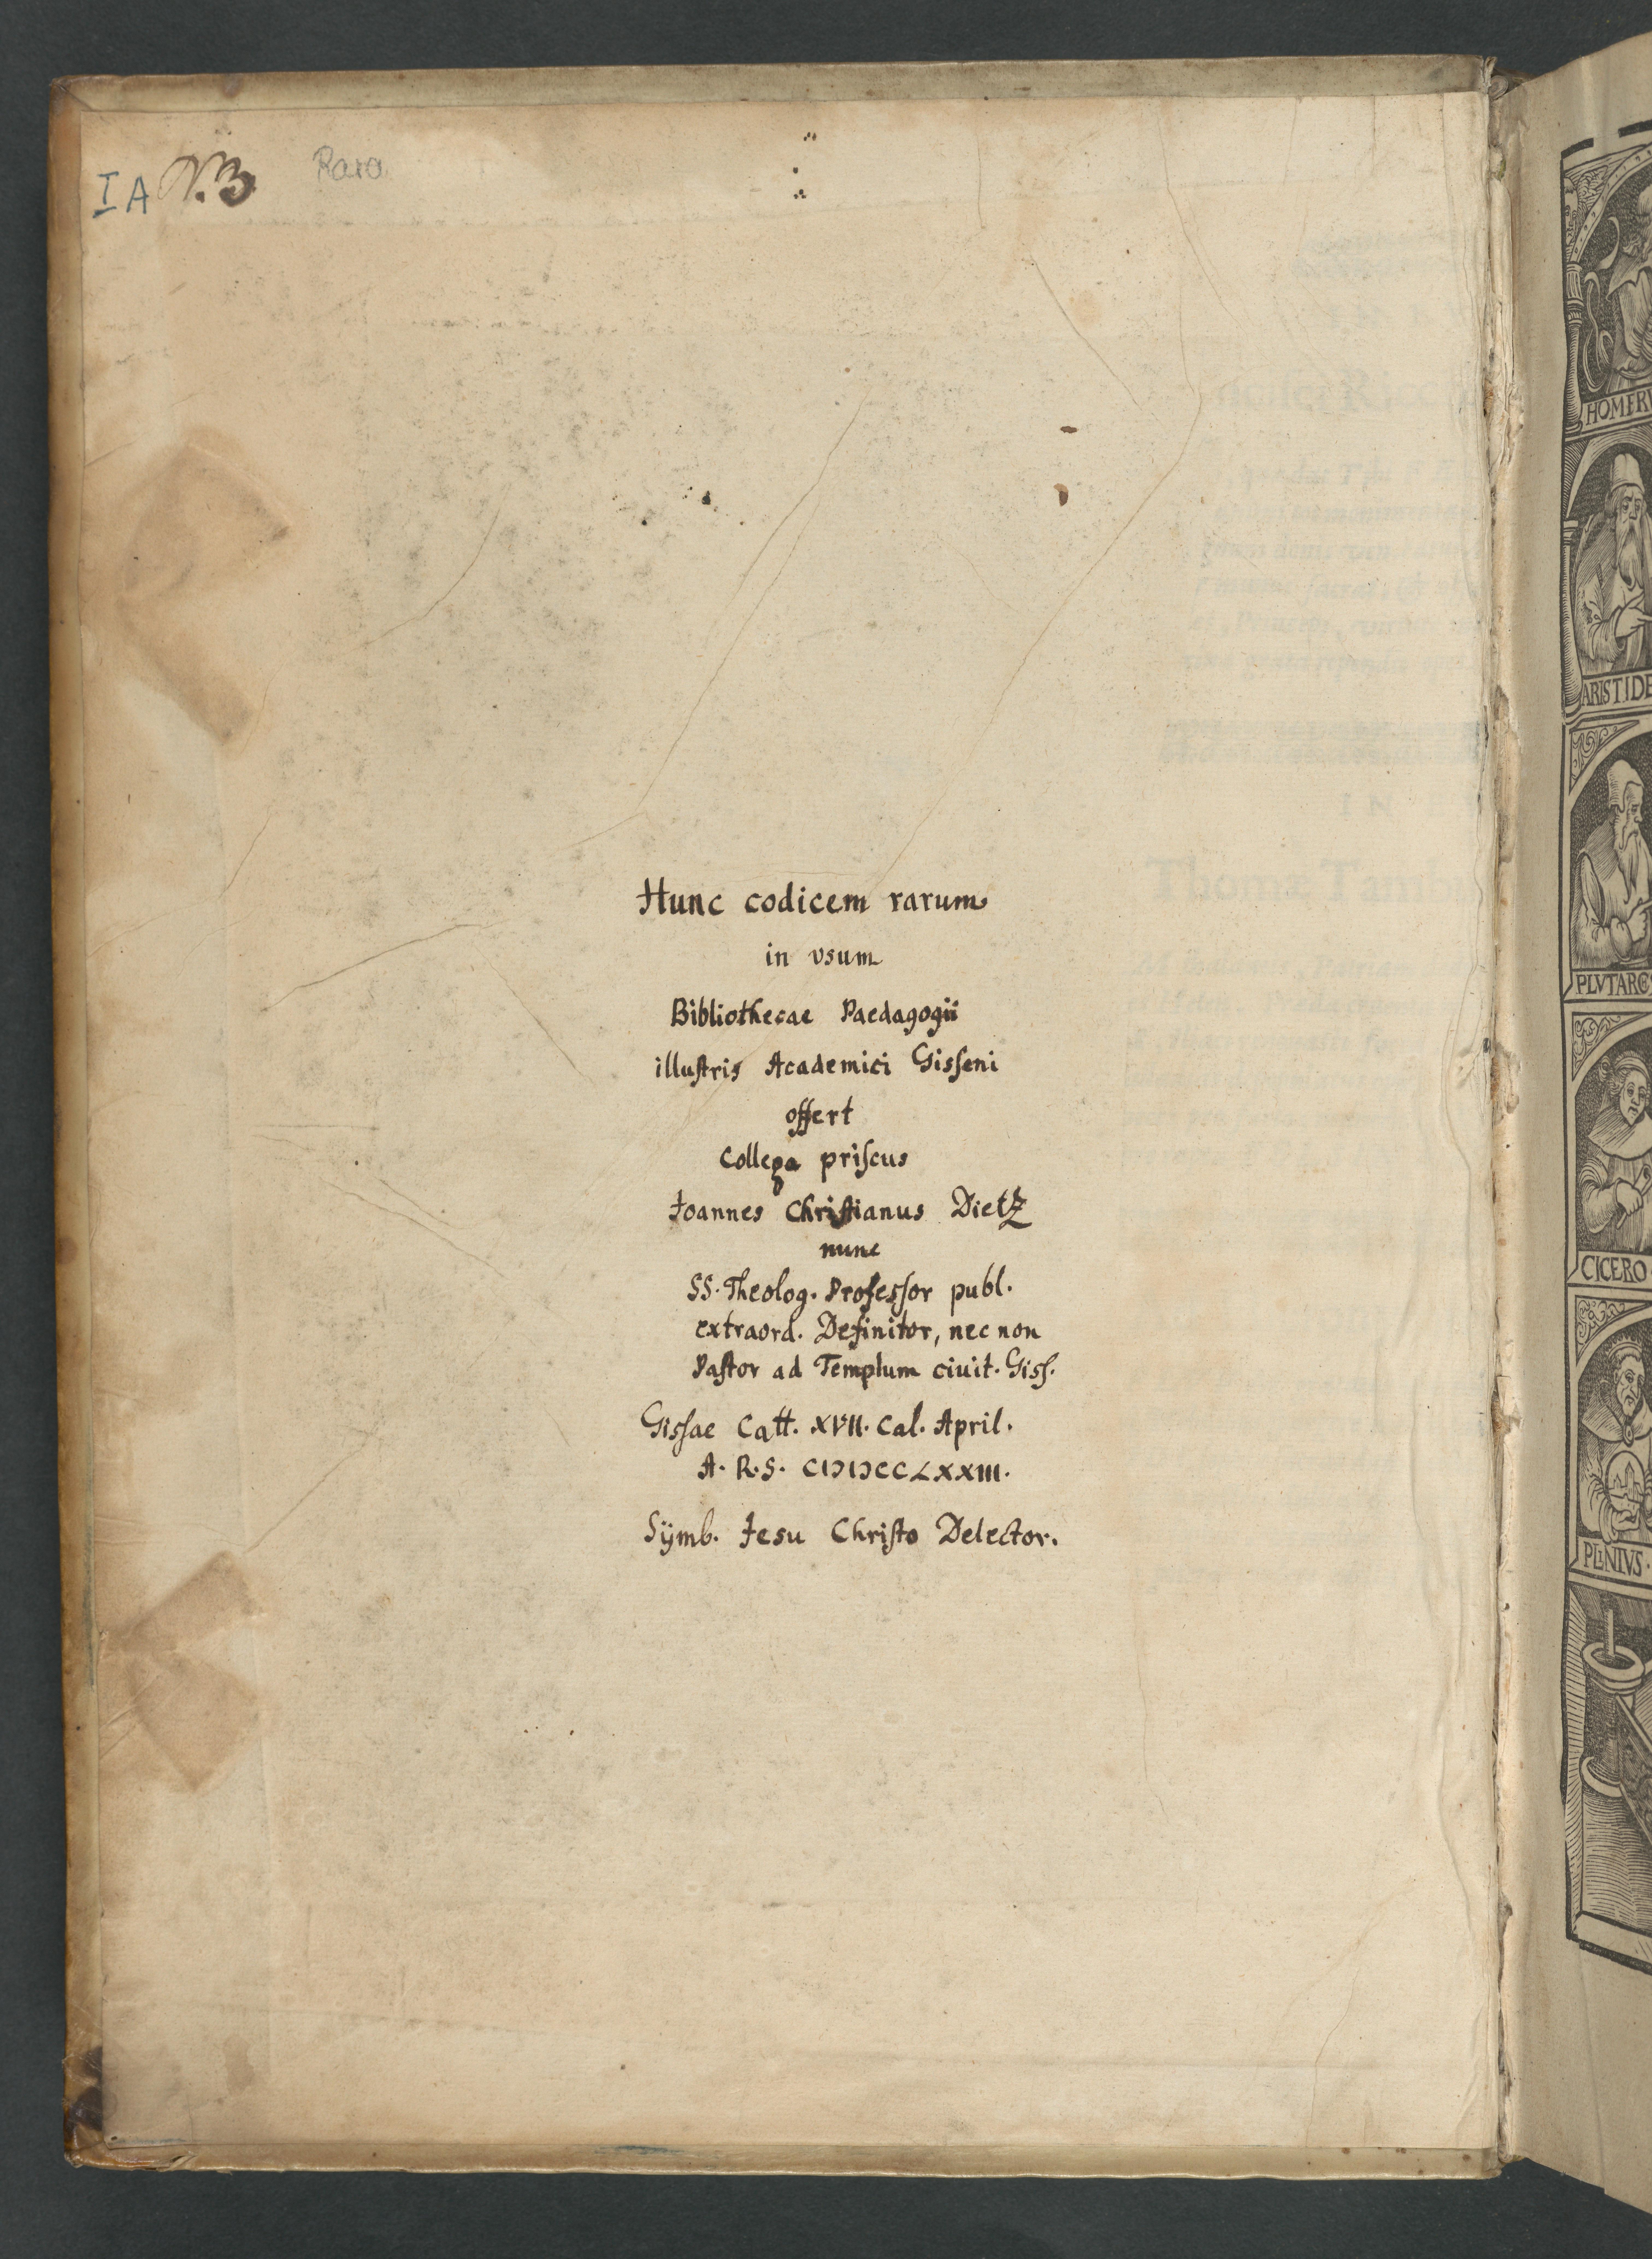 IA N.3 Rara
Hunc codicem rarum
in vsum
Bibliothecae Paedagogii
illuſtris Academici Giſſeni
offert
Collega priſcus
Joannes Chriſtianus Dietz
nunc
SS. Theolog. Profeſſor publ.
extraord. Definitor, nec non
Paſtor ad Templum ciuit. Giſſ.
Giſſae Catt. XVII. Cal. April.
A. R. S. CIƆIƆCCLXXIII.
Sÿmb. Jesu Chriſto Delector.
HOMERV
ARISTIDE
PLVTARC
CICERO
PLINIVS.